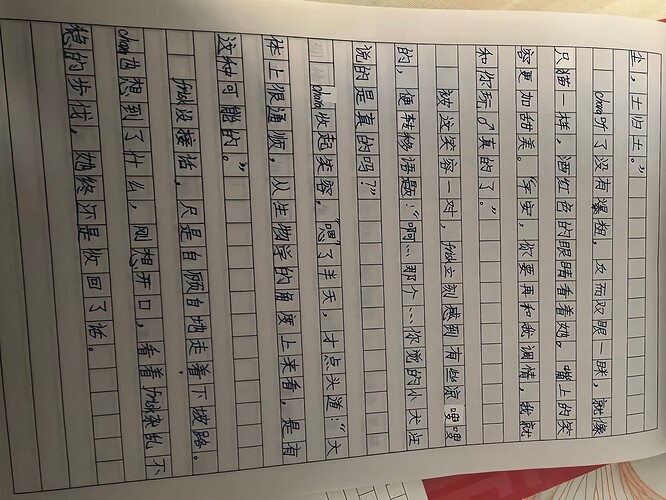 尘，土归土。”
chara听了没有爆粗，反而双眼一眯，就像
只猫一样，酒红色的眼睛看着她，嘴上的笑
容更加甜美。“宇宙，你要再和我调情，我就
和你玩♂真的了。”
被这笑容一对，frisk立刻感到有些凉嗖嗖
的，便转移话题：“啊…那个…你觉的小犬
说的是真的吗？”
chara收起笑容，“嗯”了半天，才点头道：“大
体上很通顺，从生物学的角度上来看，是有
这种可能的。”
frisk没接话，只是自顾自地走着下坡路。
chara也想到了什么，刚想开口，看着frisk杂乱不
稳的步伐，她终还是收回了话。